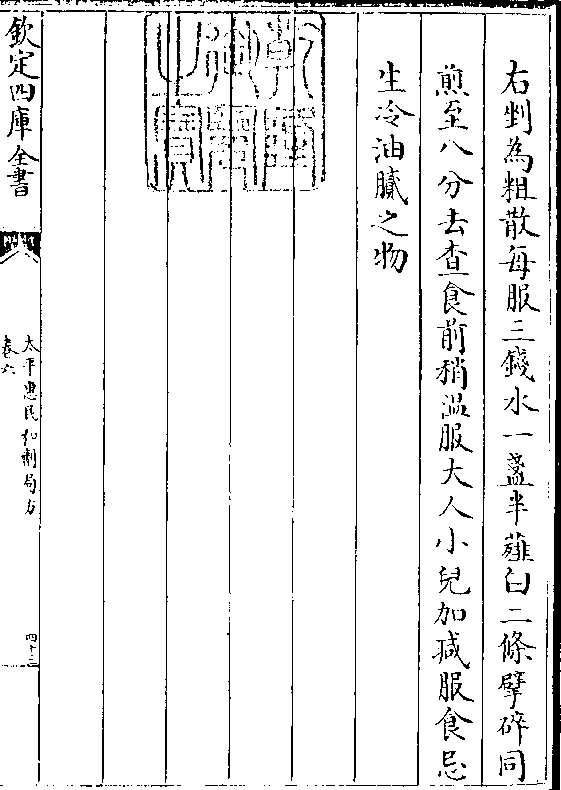 右剉為粗散每服三錢水一盞半薤白二條擘碎同
煎至八分去查食前稍溫服大人小兒加減服食忌
生冷油膩之物
乾隆御覽之寶
欽定四庫全書
太平惠民和劑局方
卷六
四十三